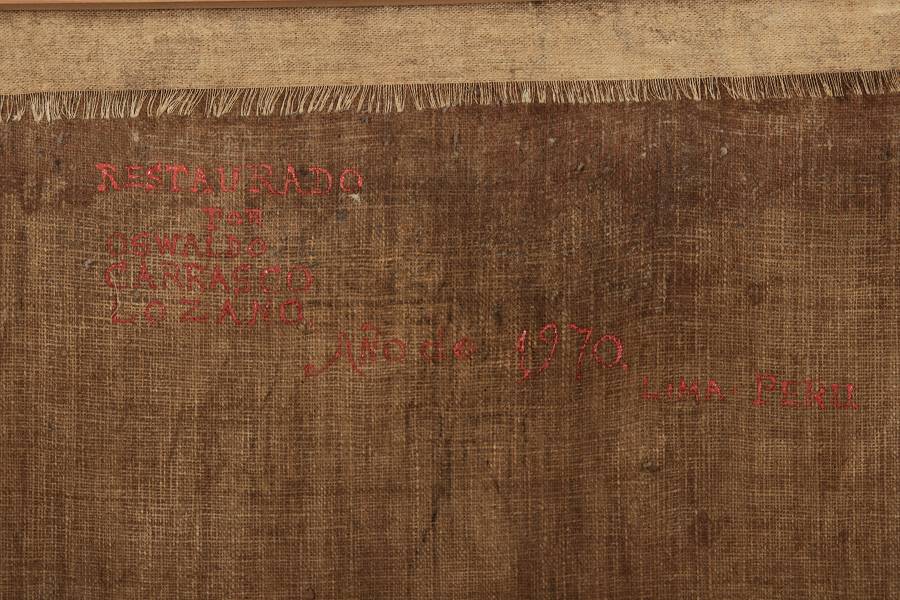 RESTAURADO
POR
OSWALDO
CARRASCO
LOZANO.
Año de 1970.
LIMA - PERU